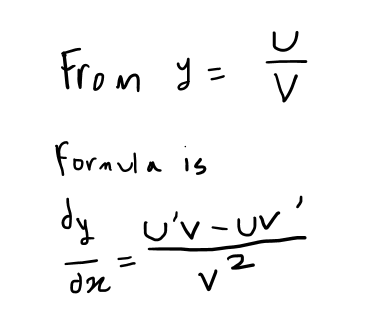 From y = U/V
Formula is
dy/dx = U'V - UV'/V²